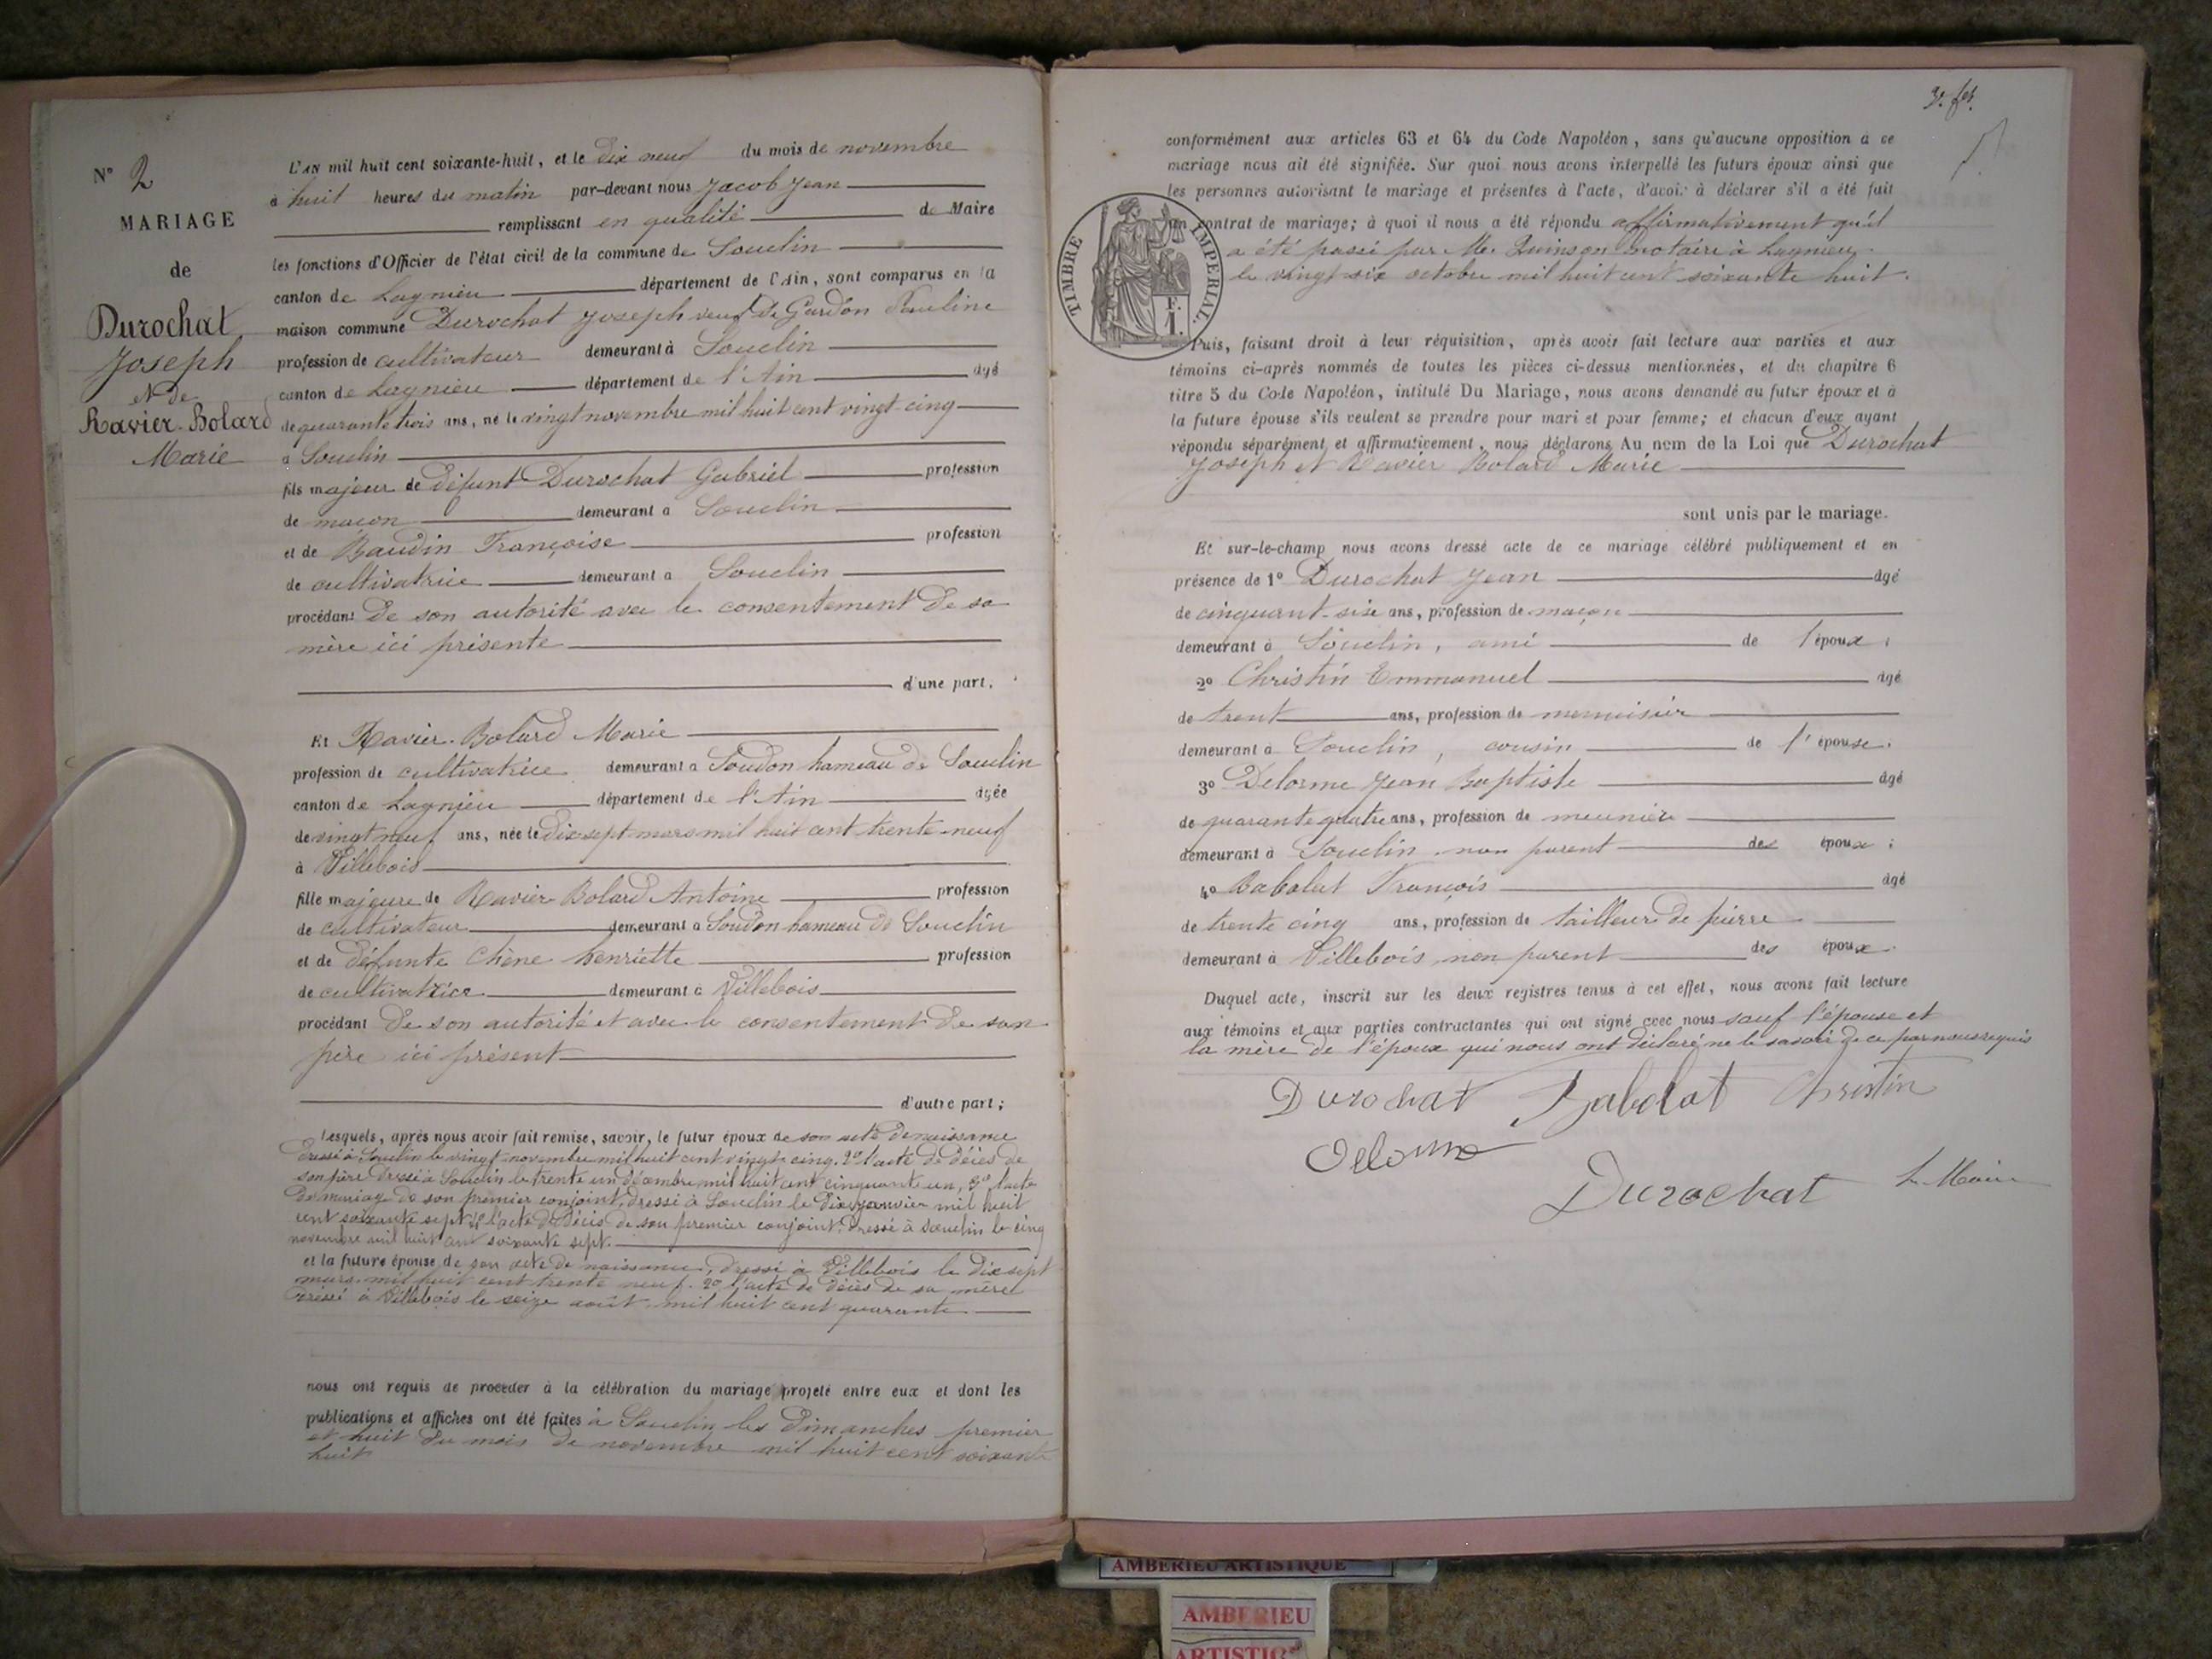 N° 2
MARIAGE
de
Durochat
Joseph
et de
Ravier-Bolard
Marie
L'AN mil huit cent soixante-huit, et le dix neuf du mois de novembre
à huit heures du matin par-devant nous Jacob Jean
remplissant en qualité de Maire
les fonctions d'Officier de l'état civil de la commune de Souclin
canton de Lagnieu département de l'Ain, sont comparus en la
maison commune Durochat Joseph veuf de Gardon Pauline
profession de cultivateur demeurant à Souclin
canton de Lagnieu département de l'Ain âgé
de quarante trois ans, né le vingt novembre mil huit cent vingt cinq
à Souclin
fils majeur de défunt Durochat Gabriel profession
de maçon demeurant à Souclin
et de Baudin Françoise profession
de cultivatrice demeurant à Souclin
procédant de son autorité avec le consentement de sa
mère ici présente
d'une part.
Et Ravier-Bolard Marie
profession de cultivatrice demeurant à Soudon hameau de Souclin
canton de Lagnieu département de l'Ain âgée
de vingt neuf ans, née le dix sept mars mil huit cent trente-neuf
à Villebois
fille majeure de Ravier Bolard Antoine profession
de cultivateur demeurant à Soudon hameau de Souclin
et de défunte Chêne henriette profession
de cultivatrice demeurant à Villebois
procédant de son autorité et avec le consentement de son
père ici présent
d'autre part;
Lesquels, après nous avoir fait remise, savoir, le futur époux de son acte de naissance
dressé à Souclin le vingt novembre mil huit cent vingt cinq. 2° l'acte de décès de
son père dressé à Souclin le trente un décembre mil huit cent cinquante un, 3° l'acte
de mariage de son premier conjoint, dressé à Souclin le dix janvier mil huit
cent soixante sept 4° l'acte de décès de son premier conjoint dressé à Souclin le cinq
novembre mil huit cent soixante sept.
et la future épouse de son acte de naissance, dressé à Villebois le dix sept
mars mil huit cent trente neuf. 2° l'acte de décès de sa mère
dressé à Villebois le seize août mil huit cent quarante.
nous ont requis de procéder à la célébration du mariage projeté entre eux et dont les
publications et affiches ont été faites à Souclin les dimanches premier
et huit du mois de novembre mil huit cent soixante
huit
conformément aux articles 63 et 64 du Code Napoléon, sans qu'aucune opposition à ce
mariage nous ait été signifiée. Sur quoi nous avons interpellé les futurs époux ainsi que
les personnes autorisant le mariage et présentes à l'acte, d'avoir à déclarer s'il a été fait
un contrat de mariage; à quoi il nous a été répondu affirmativement qu'il
a été passé par Me. Quinson notaire à Lagnieu
le vingt six octobre mil huit cent soixante huit.
TIMBRE IMPERIAL.
F.
1.
Puis, faisant droit à leur réquisition, après avoir fait lecture aux parties et aux
témoins ci-après nommés de toutes les pièces ci-dessus mentionnées, et du chapitre 6
titre 5 du Code Napoléon, intitulé Du Mariage, nous avons demandé au futur époux et à
la future épouse s'ils veulent se prendre pour mari et pour femme; et chacun d'eux ayant
répondu séparément et affirmativement, nous déclarons Au nom de la Loi que Durochat
Joseph et Ravier Bolard Marie
sont unis par le mariage.
Et sur-le-champ nous avons dressé acte de ce mariage célébré publiquement et en
présence de 1° Durochat Jean âgé
de cinquant-six ans, profession de maçon
demeurant à Souclin, ami de l'époux;
2° Christin Emmanuel âgé
de trent ans, profession de menuisier
demeurant à Souclin, cousin de l'épouse;
3° Delorme Jean Baptiste âgé
de quarante quatre ans, profession de meunier
demeurant à Souclin non parent des époux;
4° Babolat François âgé
de trente cinq ans, profession de tailleur de pierre
demeurant à Villebois non parent des époux.
Duquel acte, inscrit sur les deux registres tenus à cet effet, nous avons fait lecture
aux témoins et aux parties contractantes qui ont signé avec nous sauf l'épouse et
la mère de l'époux qui nous ont déclaré ne le savoir de ce par nous requis
Durochat Babolat Christin
Delorme
Durochat Le Maire
AMBERIEU ARTISTIQUE
AMBERIEU
ARTISTIQ